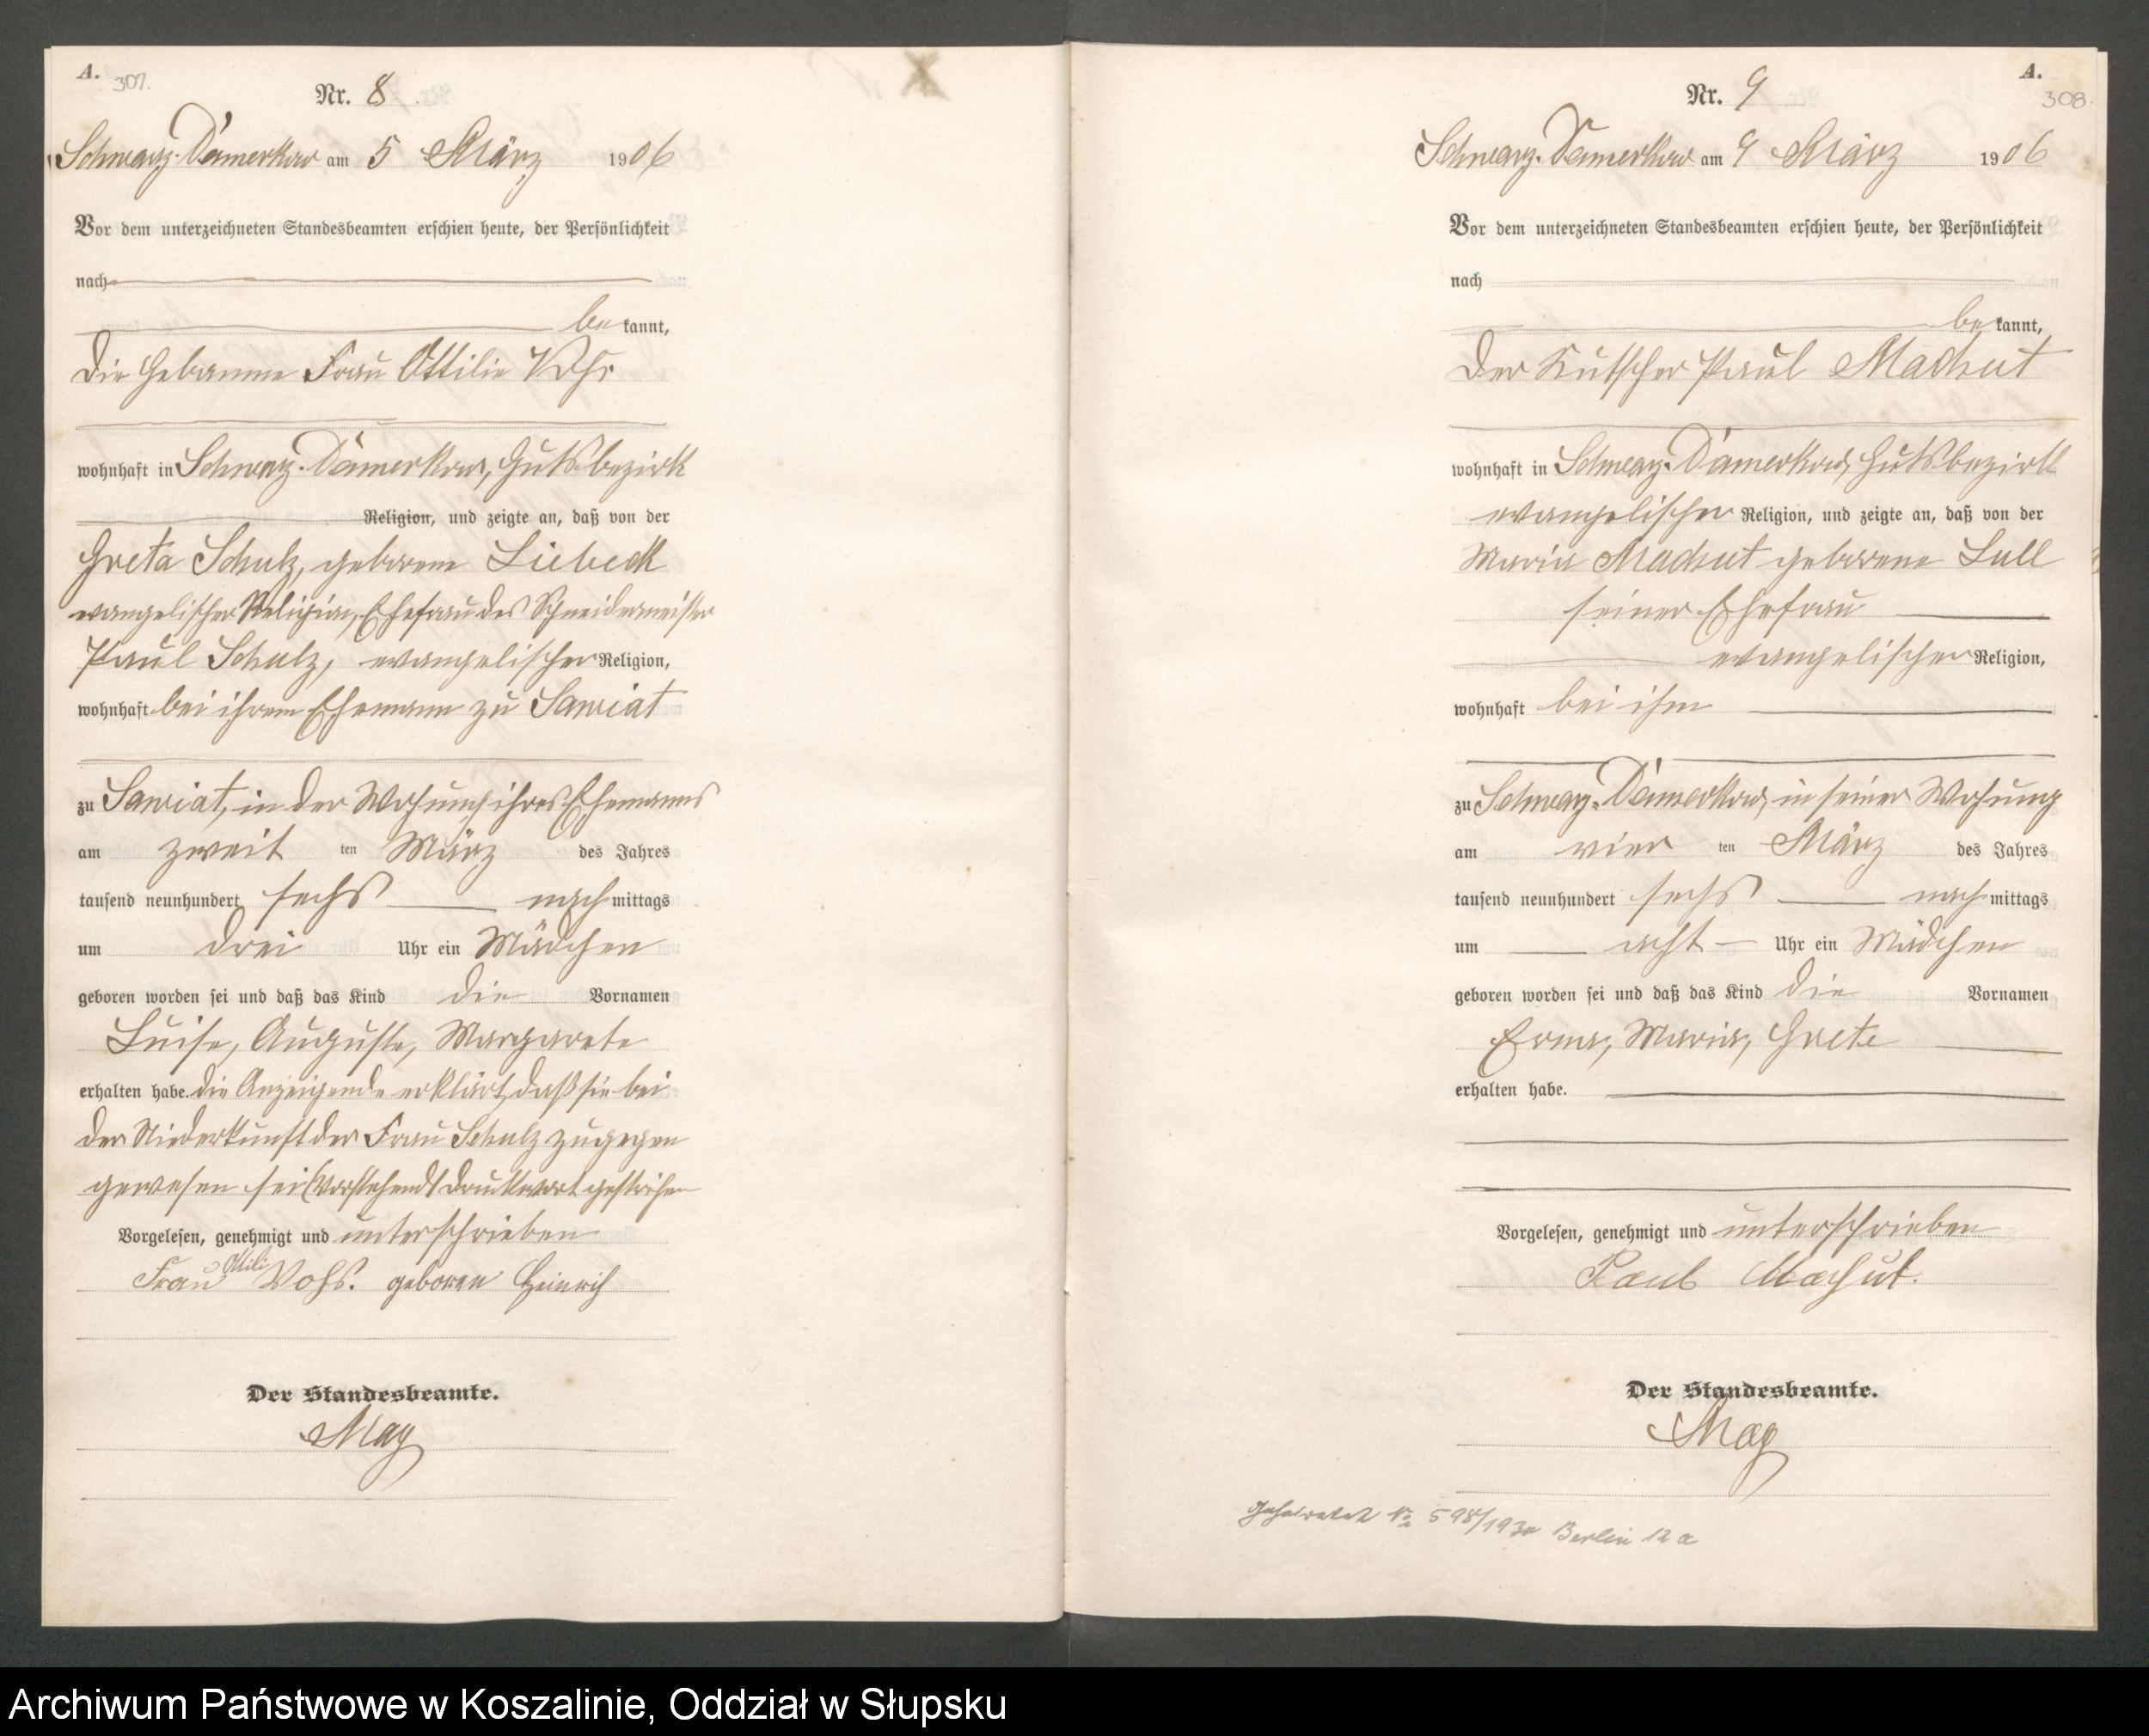 A.
307.
Nr. 8
Schwarz-Damerkow am 5 März 1906
Vor dem unterzeichneten Standesbeamten erschien heute, der Persönlichkeit
nach
bekannt,
die Hebamme Frau Ottilie Vohs
wohnhaft in Schwarz-Damerkow, Gutsbezirk
Religion, und zeigte an, daß von der
Greta Schulz, geborene Liebeck
evangelischer Religion, Ehefrau des Schneidermeister
Paul Schulz, evangelischer Religion,
wohnhaft bei ihrem Ehemann zu Sawiat
zu Sawiat, in der Wohnung ihres Ehemanns
am zweit ten März des Jahres
tausend neunhundert sechs nachmittags
um drei Uhr ein Mädchen
geboren worden sei und daß das Kind die Vornamen
Luise, Auguste, Margarete
erhalten habe. die Anzeigende erklärt, daß sie bei
der Niederkunft der Frau Schulz zugegen
gewesen sei Vorstehend 1 Druckwort gestrichen
Vorgelesen, genehmigt und unterschrieben
Frau Vohs. geboren Heinrich
Der Standesbeamte.
May
A.
308.
Nr. 9
Schwarz-Damerkow am 9 März 1906
Vor dem unterzeichneten Standesbeamten erschien heute, der Persönlichkeit
nach
bekannt,
der Kutscher Paul Machut
wohnhaft in Schwarz-Damerkow, Gutsbezirk
evangelischer Religion, und zeigte an, daß von der
Maria Machut geborene Lull
seiner Ehefrau
evangelischer Religion,
wohnhaft bei ihm
zu Schwarz-Damerkow, in seiner Wohnung
am vier ten März des Jahres
tausend neunhundert sechs nachmittags
um acht Uhr ein Mädchen
geboren worden sei und daß das Kind die Vornamen
Erna, Maria, Grete
erhalten habe.
Vorgelesen, genehmigt und unterschrieben
Paul Machut.
Der Standesbeamte.
May
Geheiratet No 598/1930 Berlin 12 a
Archiwum Państwowe w Koszalinie, Oddział w Słupsku